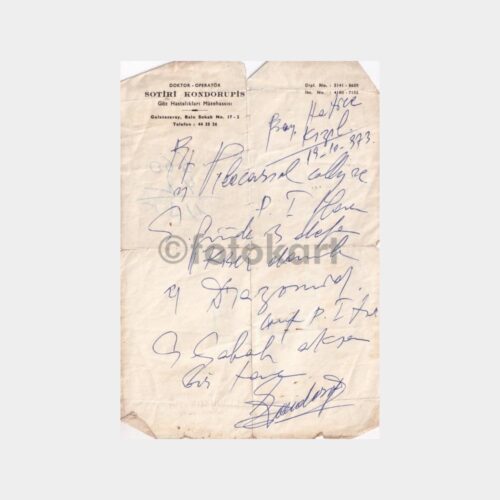 DOKTOR - OPERATÖR
SOTİRİ KONDORUPİS
Göz Hastalıkları Mütehassısı
Galatasaray, Balo Sokak No. 17 - 2
Telefon : 44 25 26
Dipl. No. : 2141 - 8609
İhs. No. : 4180 - 7152
Bay. Hatice
Kızıl
19-10-973
R/
collyre
P. I
S. Günde 3 defa
birer damla
Diazomid
comp P. I
S. Sabah akşam
bir tane
©fotokart